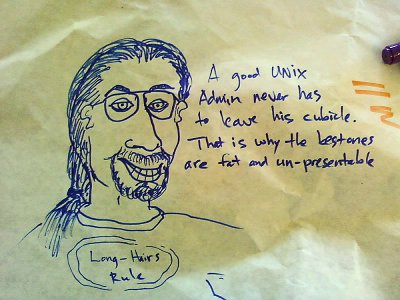 A good UNIX
Admin never has
to leave his cubicle.
That is why the best ones
are fat and un-presentable
Long-Hairs
Rule